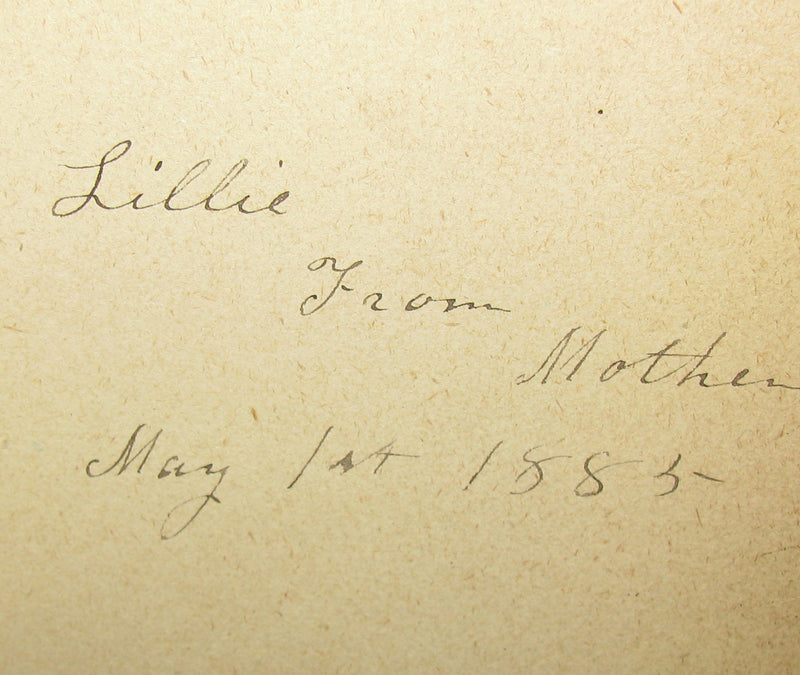 Lillie
From
Mother
May 1st 1885